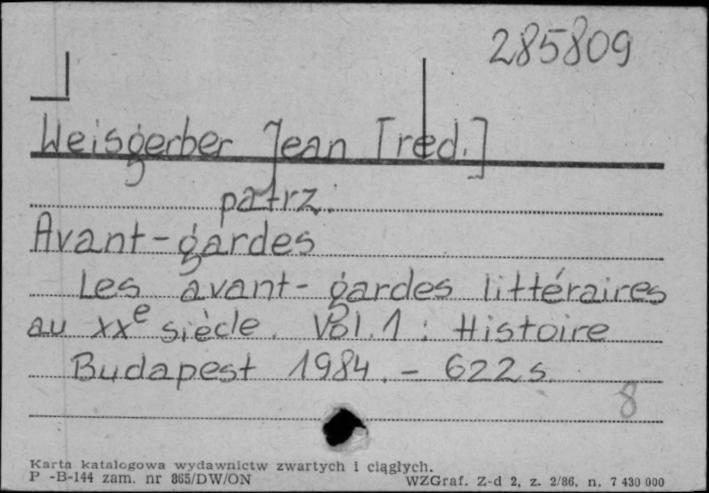 285809
Weisgerber Jean [red.]
patrz:
Avant-gardes
Les avant-gardes littéraires
au XXe siècle. Vol.1 : Histoire
Budapest 1984. - 622 s.
8
Karta katalogowa wydawnictw zwartych i ciągłych.
P -B-144 zam. nr 865/DW/ON
WZGraf. Z-d 2, z. 2/86, n. 7 430 000